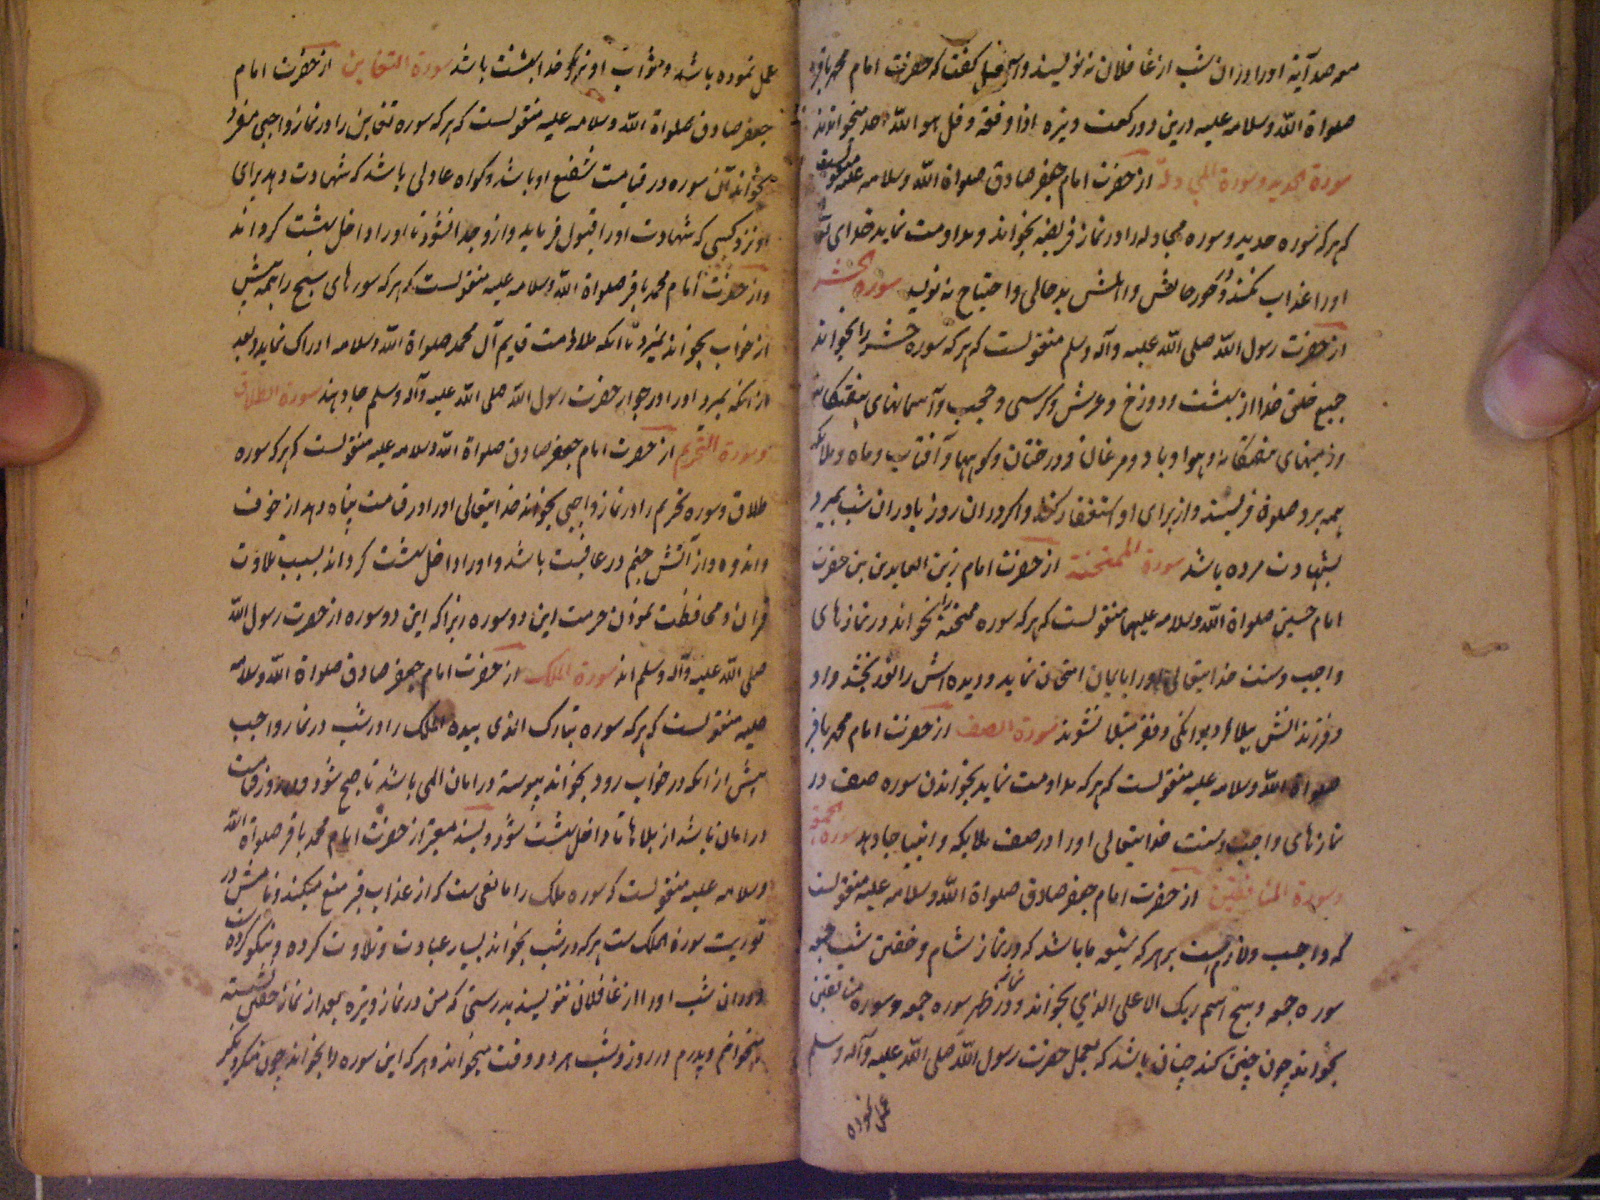 صد آیة او را در ان شب از غافلان نه نویسند و گفت که حضرت امام محمد باقر
صلواة الله و سلامه علیه درین دو رکعت وتیره اذا وقعه و قل هو الله احد میخواندند
سورة الحدید و سورة المجادله از حضرت امام جعفر صادق صلواة الله و سلامه علیه منقولست
که هر که سوره حدید و سوره مجادله را در نماز فریضه بخواند و مداومت نماید خدای تع
او را عذاب نکند و در خود حالش و اهلش بد حالی و احتیاج نه نوید سورة الحشر
از حضرت رسول الله صلی الله علیه و آله و سلم منقولست که هر که سوره حشر را بخواند
جمیع خلق خدا از بهشت و دوزخ و عرش و کرسی و حجب و آسمانهای هفتگانه
و زمینهای هفتگانه و هوا و باد و مرغان و درختان و کوهها و آفتاب و ماه و ملایکه
همه برو صلوة فرستند و از برای او استغفار کنند و اگر در ان روز یا در ان شب بمیرد
بشهادت مرده باشد سورة الممتحنة از حضرت امام زین العابدین بن حضرت
امام حسین صلواة الله و سلامه علیهما منقولست که هر که سوره ممتحنه را بخواند در نمازهای
واجب و سنت خدایتعالی او را بایمان امتحان نماید و دیده اش را نور بخشد و او
و فرزندانش ببلا و دیوانگی و فقر مبتلا نشوند سورة الصف از حضرت امام محمد باقر
صلواة الله و سلامه علیه منقولست که هر که مداومت نماید بخواندن سوره صف در
نمازهای واجب و سنت خدایتعالی او را در صف ملایکه و انبیا جا دهد سورة الجمعة
و سورة المنافقین از حضرت امام جعفر صادق صلواة الله و سلامه علیه منقولست
که واجب و لازمست بر هر که شیعه ما باشد که در نماز شام و خفتن شب جمعه
سوره جمعه و سبح اسم ربک الاعلی الذی بخواند و در نماز ظهر سوره جمعه و سوره منافقین
بخواند چون چنین کند چنان باشد که بعمل حضرت رسول الله صلی الله علیه و آله و سلم
عمل نموده
عمل نموده باشد و ثواب او نزد خدا بهشت باشد سورة التغابن از حضرت امام
جعفر صادق صلواة الله و سلامه علیه منقولست که هر که سوره تغابن را در نماز واجبی مفرد
بخواند آن سوره در قیامت شفیع او باشد و کواه عادلی باشد که شهادت دهد برای
او نزد کسی که شهادت او را قبول فرماید و ازو جدا نشود تا او را داخل بهشت کرداند
و از حضرت امام محمد باقر صلواة الله و سلامه علیه منقولست که هر که سورهای سبح را همه پیش
از خواب بخواند نمیرد تا انکه ملازمت قایم آل محمد صلواة الله و سلامه ادراک نماید و بعد
از انکه بمیرد او را در جوار حضرت رسول الله صلی الله علیه و آله و سلم جا دهند سورة الطلاق
و سورة التحریم از حضرت امام جعفر صادق صلواة الله و سلامه علیه منقولست که هر که سوره
طلاق و سوره تحریم را در نماز واجبی بخواند خدایتعالی او را در قیامت پناه دهد از خوف
و اندوه و از آتش جهنم در عافیت باشد و او را داخل بهشت کرداند بسبب تلاوت
قران و محافظت نمودن حرمت این دو سوره زیرا که این دو سوره از حضرت رسول الله
صلی الله علیه و آله و سلم اند سورة الملک از حضرت امام جعفر صادق صلواة الله و سلامه
علیه منقولست که هر که سوره تبارک الذی بیده الملک را در شب در نماز واجب
پیش از انکه در خواب رود بخواند پیوسته در امان الهی باشد تا صبح شود و در روز قیامت
در امان باشد از بلاها تا داخل بهشت شود و بسند معتبر از حضرت امام محمد باقر صلواة الله
و سلامه علیه منقولست که سوره ملک را مانعی ست که از عذاب قبر منع میکند و نامش در
توریت سورة الملک ست هر که در شب بخواند بسیار عبادت و تلاوت کرده و نیکو کرده است
و در ان شب او را از غافلان ننویسند بدرستی که من در نماز وتیره بعد از نماز خفتن نشسته
میخوانم و پدرم در روز و شب هر دو وقت میخواند و هر که این سوره را بخواند چون منکر و نکیر